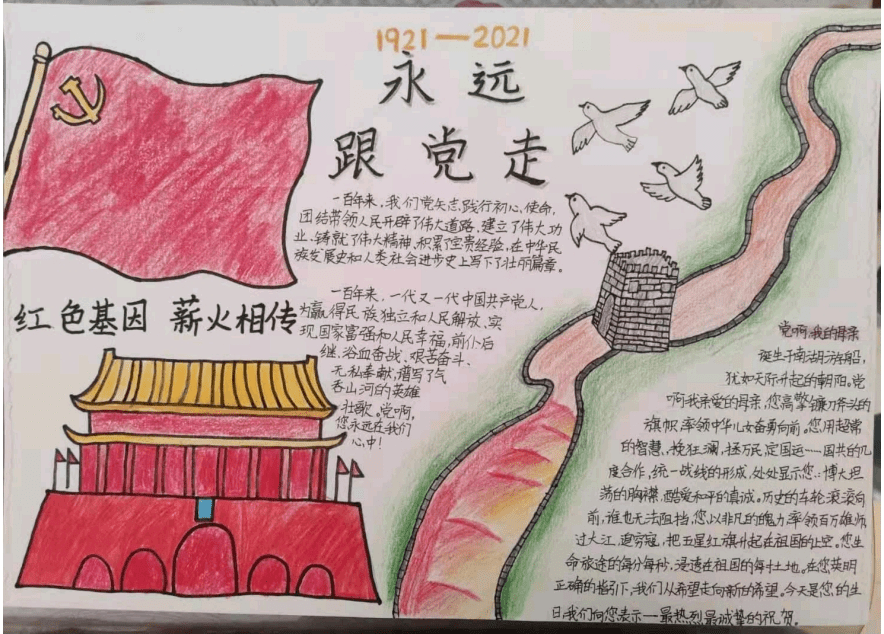 1921—2021
永远
跟党走
一百年来,我们党矢志践行初心、使命,
团结带领人民开辟了伟大道路,建立了伟大功
业,铸就了伟大精神,积累了宝贵经验,在中华民
族发展史和人类社会进步史上写下了壮丽篇章。
红色基因 薪火相传
一百年来,一代又一代中国共产党人,
为赢得民族独立和人民解放、实
现国家富强和人民幸福,前仆后
继、浴血奋战、艰苦奋斗、
无私奉献,谱写了气
吞山河的英雄
壮歌。党啊,
您永远在我们
心中!
党啊,我的母亲
诞生于南湖游船,
犹如天际升起的朝阳。党
啊我亲爱的母亲,您高擎镰刀斧头的
旗帜,率领中华儿女奋勇向前。您用超常
的智慧,挽狂澜,拯万民,定国运……国共的几
度合作,统一战线的形成,处处显示您:博大坦
荡的胸襟,酷爱和平的真诚。历史的车轮滚滚向
前,谁也无法阻挡,您以非凡的魄力率领百万雄师
过大江,追穷寇,把五星红旗升起在祖国的上空。您生
命旅途的每分每秒,浸透在祖国的每寸土地。在您英明
正确的指引下,我们从希望走向新的希望。今天是您的生
日,我们向您表示一最热烈最诚挚的祝贺。